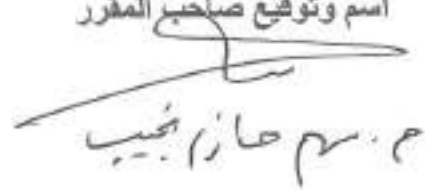 اسم وتوقيع صاحب المقرر
م. سهم حازم نجيب